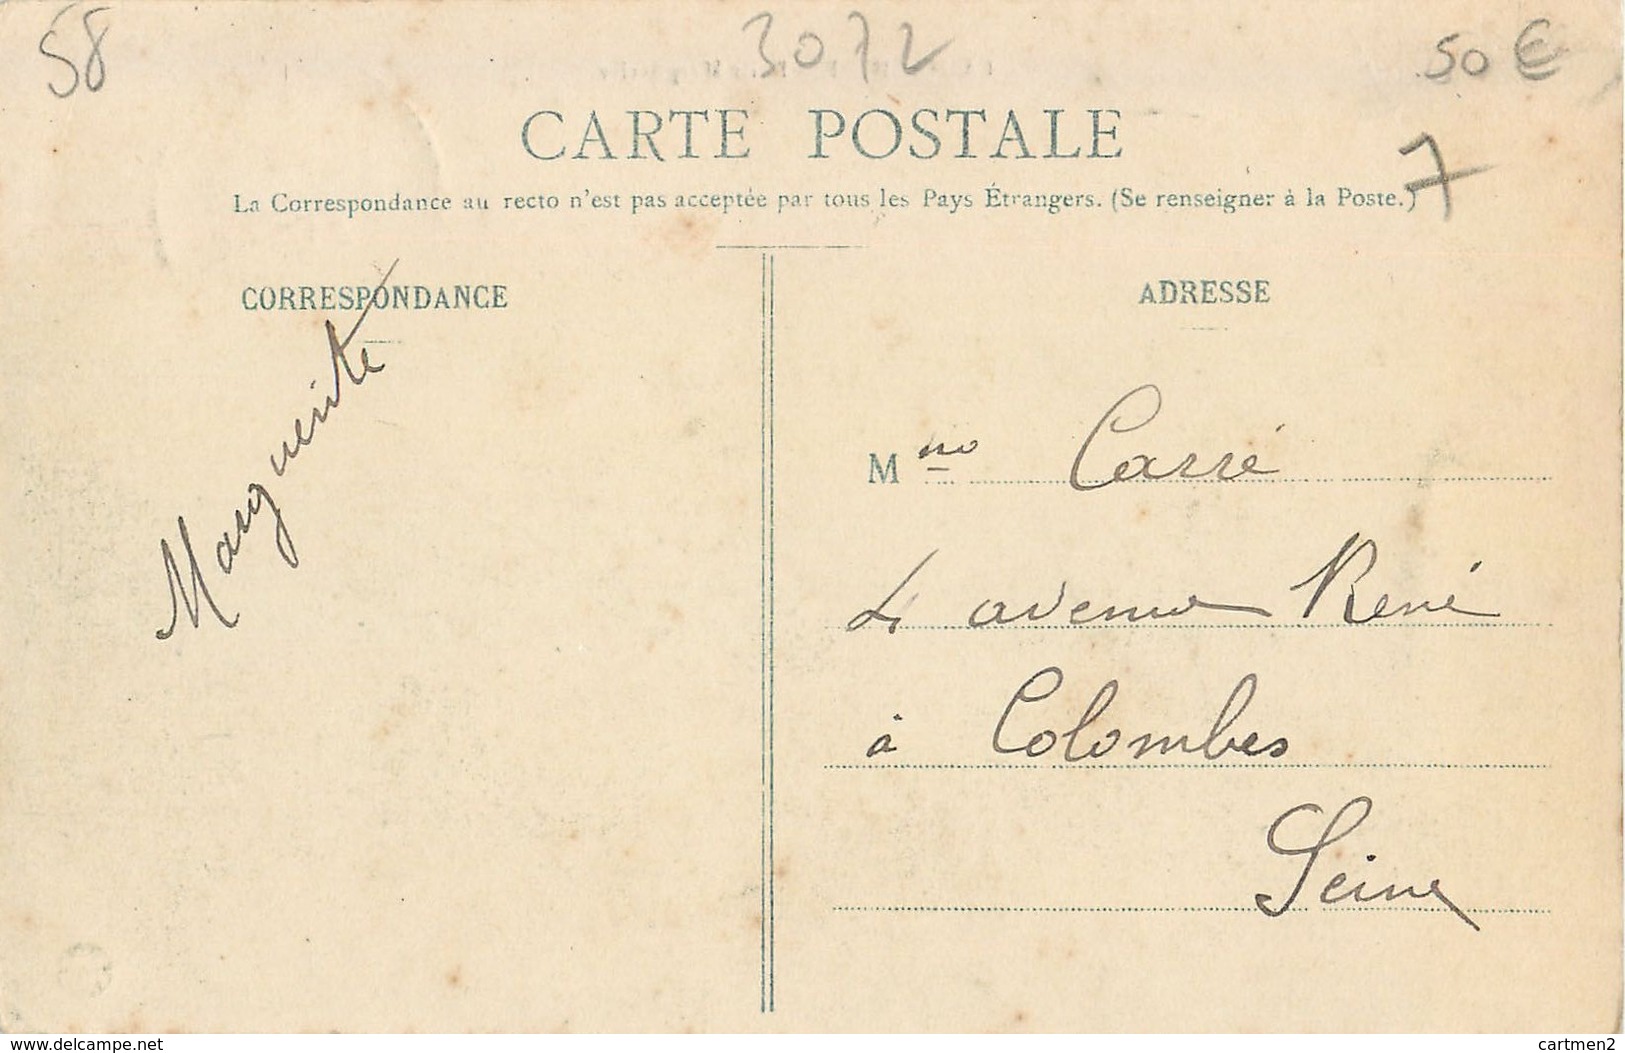 58
3072
50 €
CARTE POSTALE
7
La Correspondance au recto n'est pas acceptée par tous les Pays Étrangers. (Se renseigner à la Poste.)
CORRESPONDANCE
Marguerite
ADRESSE
Mme Carré
4 avenue René
à Colombes
Seine
www.delcampe.net
cartmen2